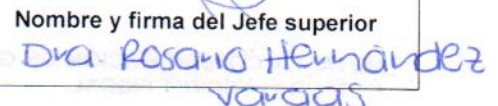 Nombre y firma del Jefe superior
Dra Rosario Hernández
Vargas